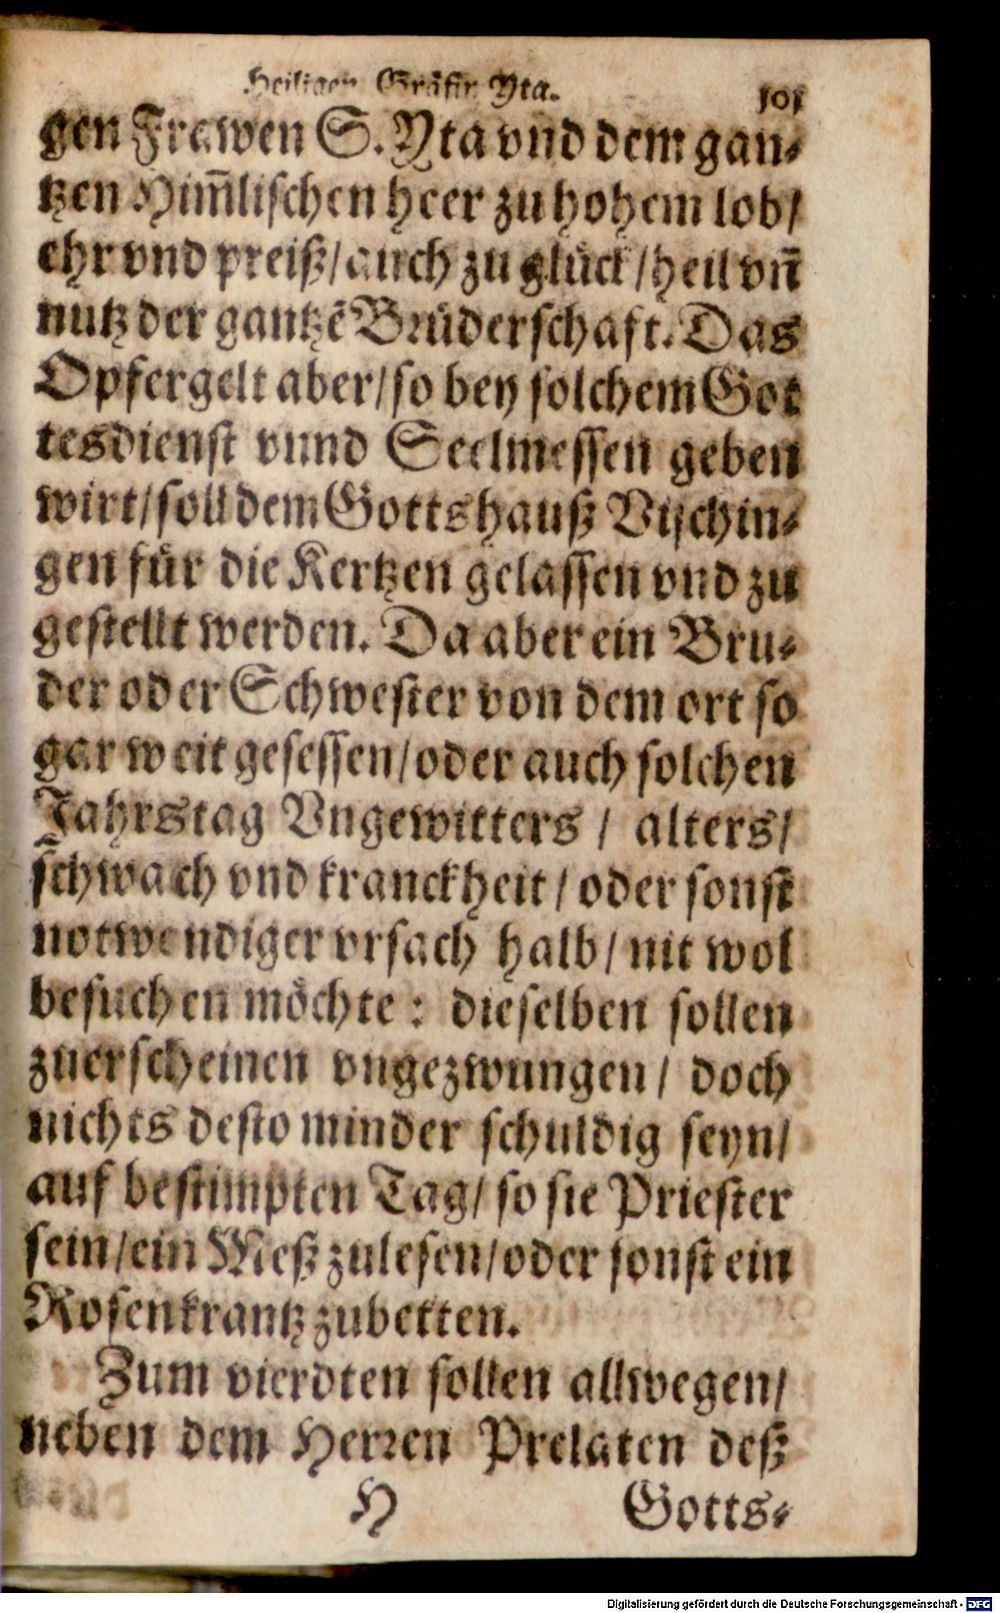 Heiligen Gräfin Yta. 101
gen Frawen S. Yta vnd dem gan⸗
tzen Him̄lischen heer zu hohem lob/
ehr vnd preiß/ auch zu glück/ heil vn̄
nutz der gantzẽ Brüderschaft. Das
Opfergelt aber/ so bey solchem Got
tesdienst vnnd Seelmessen geben
wirt/ soll dem Gottshauß Vischin⸗
gen für die Kertzen gelassen vnd zu
gestellt werden. Da aber ein Bru⸗
der oder Schwester von dem ort so
gar weit gesessen/ oder auch solchen
Jahrstag Vngewitters / alters/
schwach vnd kranckheit / oder sonst
notwendiger vrsach halb/ nit wol
besuchen möchte : dieselben sollen
zuerscheinen vngezwungen / doch
nichts desto minder schuldig seyn/
auf bestimpten Tag/ so sie Priester
sein/ ein Meß zulesen/ oder sonst ein
Rosenkrantz zubetten.
Zum vierdten sollen allwegen/
neben dem Herren Prelaten deß
H Gotts⸗
Digitalisierung gefördert durch die Deutsche Forschungsgemeinschaft - DFG